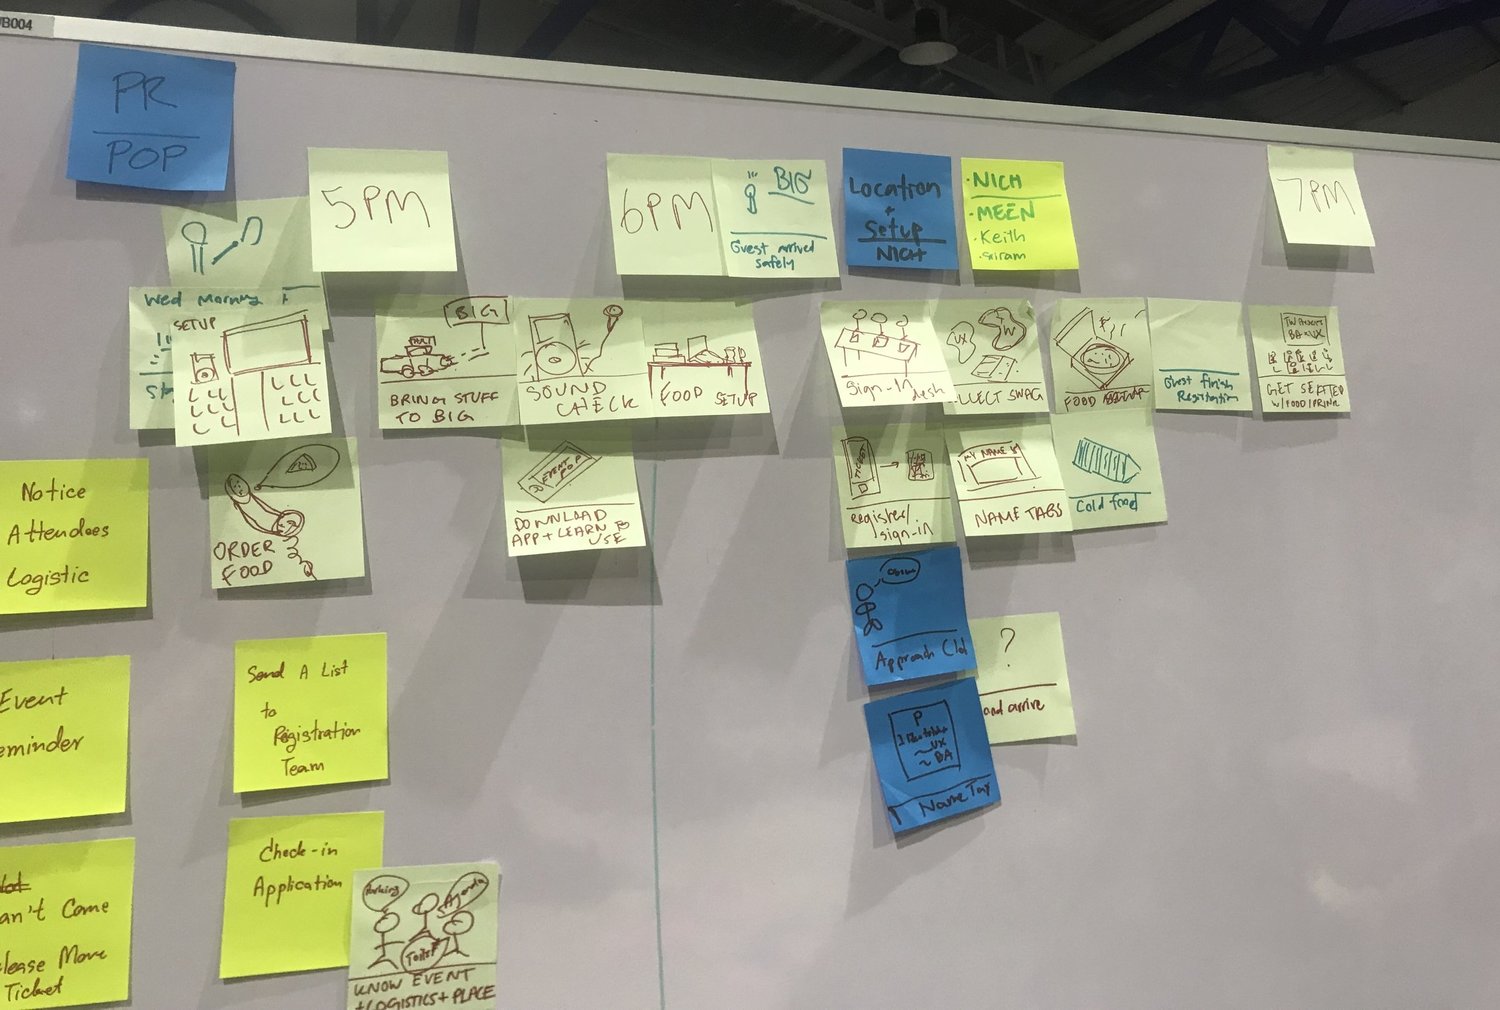 B004
PR
POP
5PM
6PM
BIG
Guest arrived
safely
Location
+
Setup
NICH
· NICH
· MEEN
· Keith
· Sriram
7PM
Wed Morning
SETUP
BIG
BRING STUFF
TO BIG
SOUND
CHECK
FOOD SETUP
Sign-In desk
UX
W
LLECT SWAG
FOOD
Guest finish
Registration
GET SEATED
W/FOOD/DRINK
Notice
Attendees
Logistic
ORDER
FOOD
EVENT
POP
DOWNLOAD
APP + LEARN TO
USE
TICKET
Register/
sign-in
MY NAME IS
NAME TAGS
Cold food
Approach
?
and arrive
P
~ UX
~ BA
Name Tag
Event
eminder
Send A List
to
Registration
Team
an't Come
lease Move
Ticket
Check-in
Application
Parking
Agenda
Toilet
KNOW EVENT
+LOGISTICS+PLACE